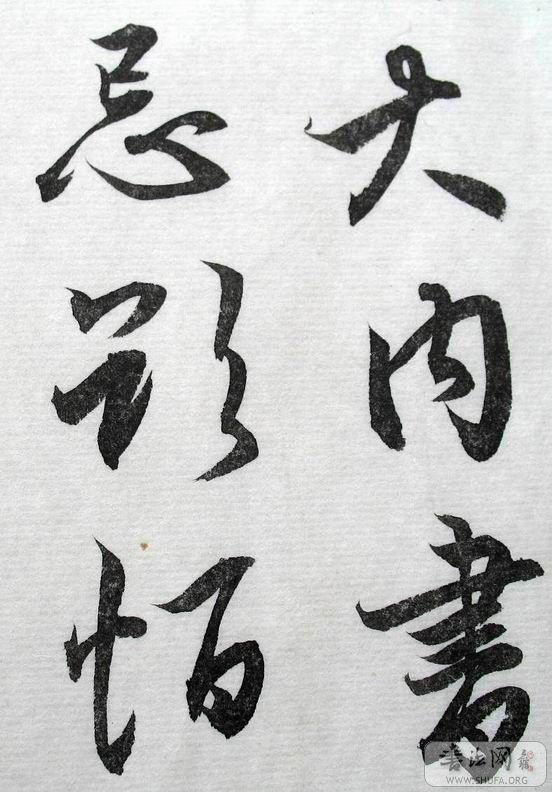 大内書
忌怕
書法网
WWW.SHUFA.ORG